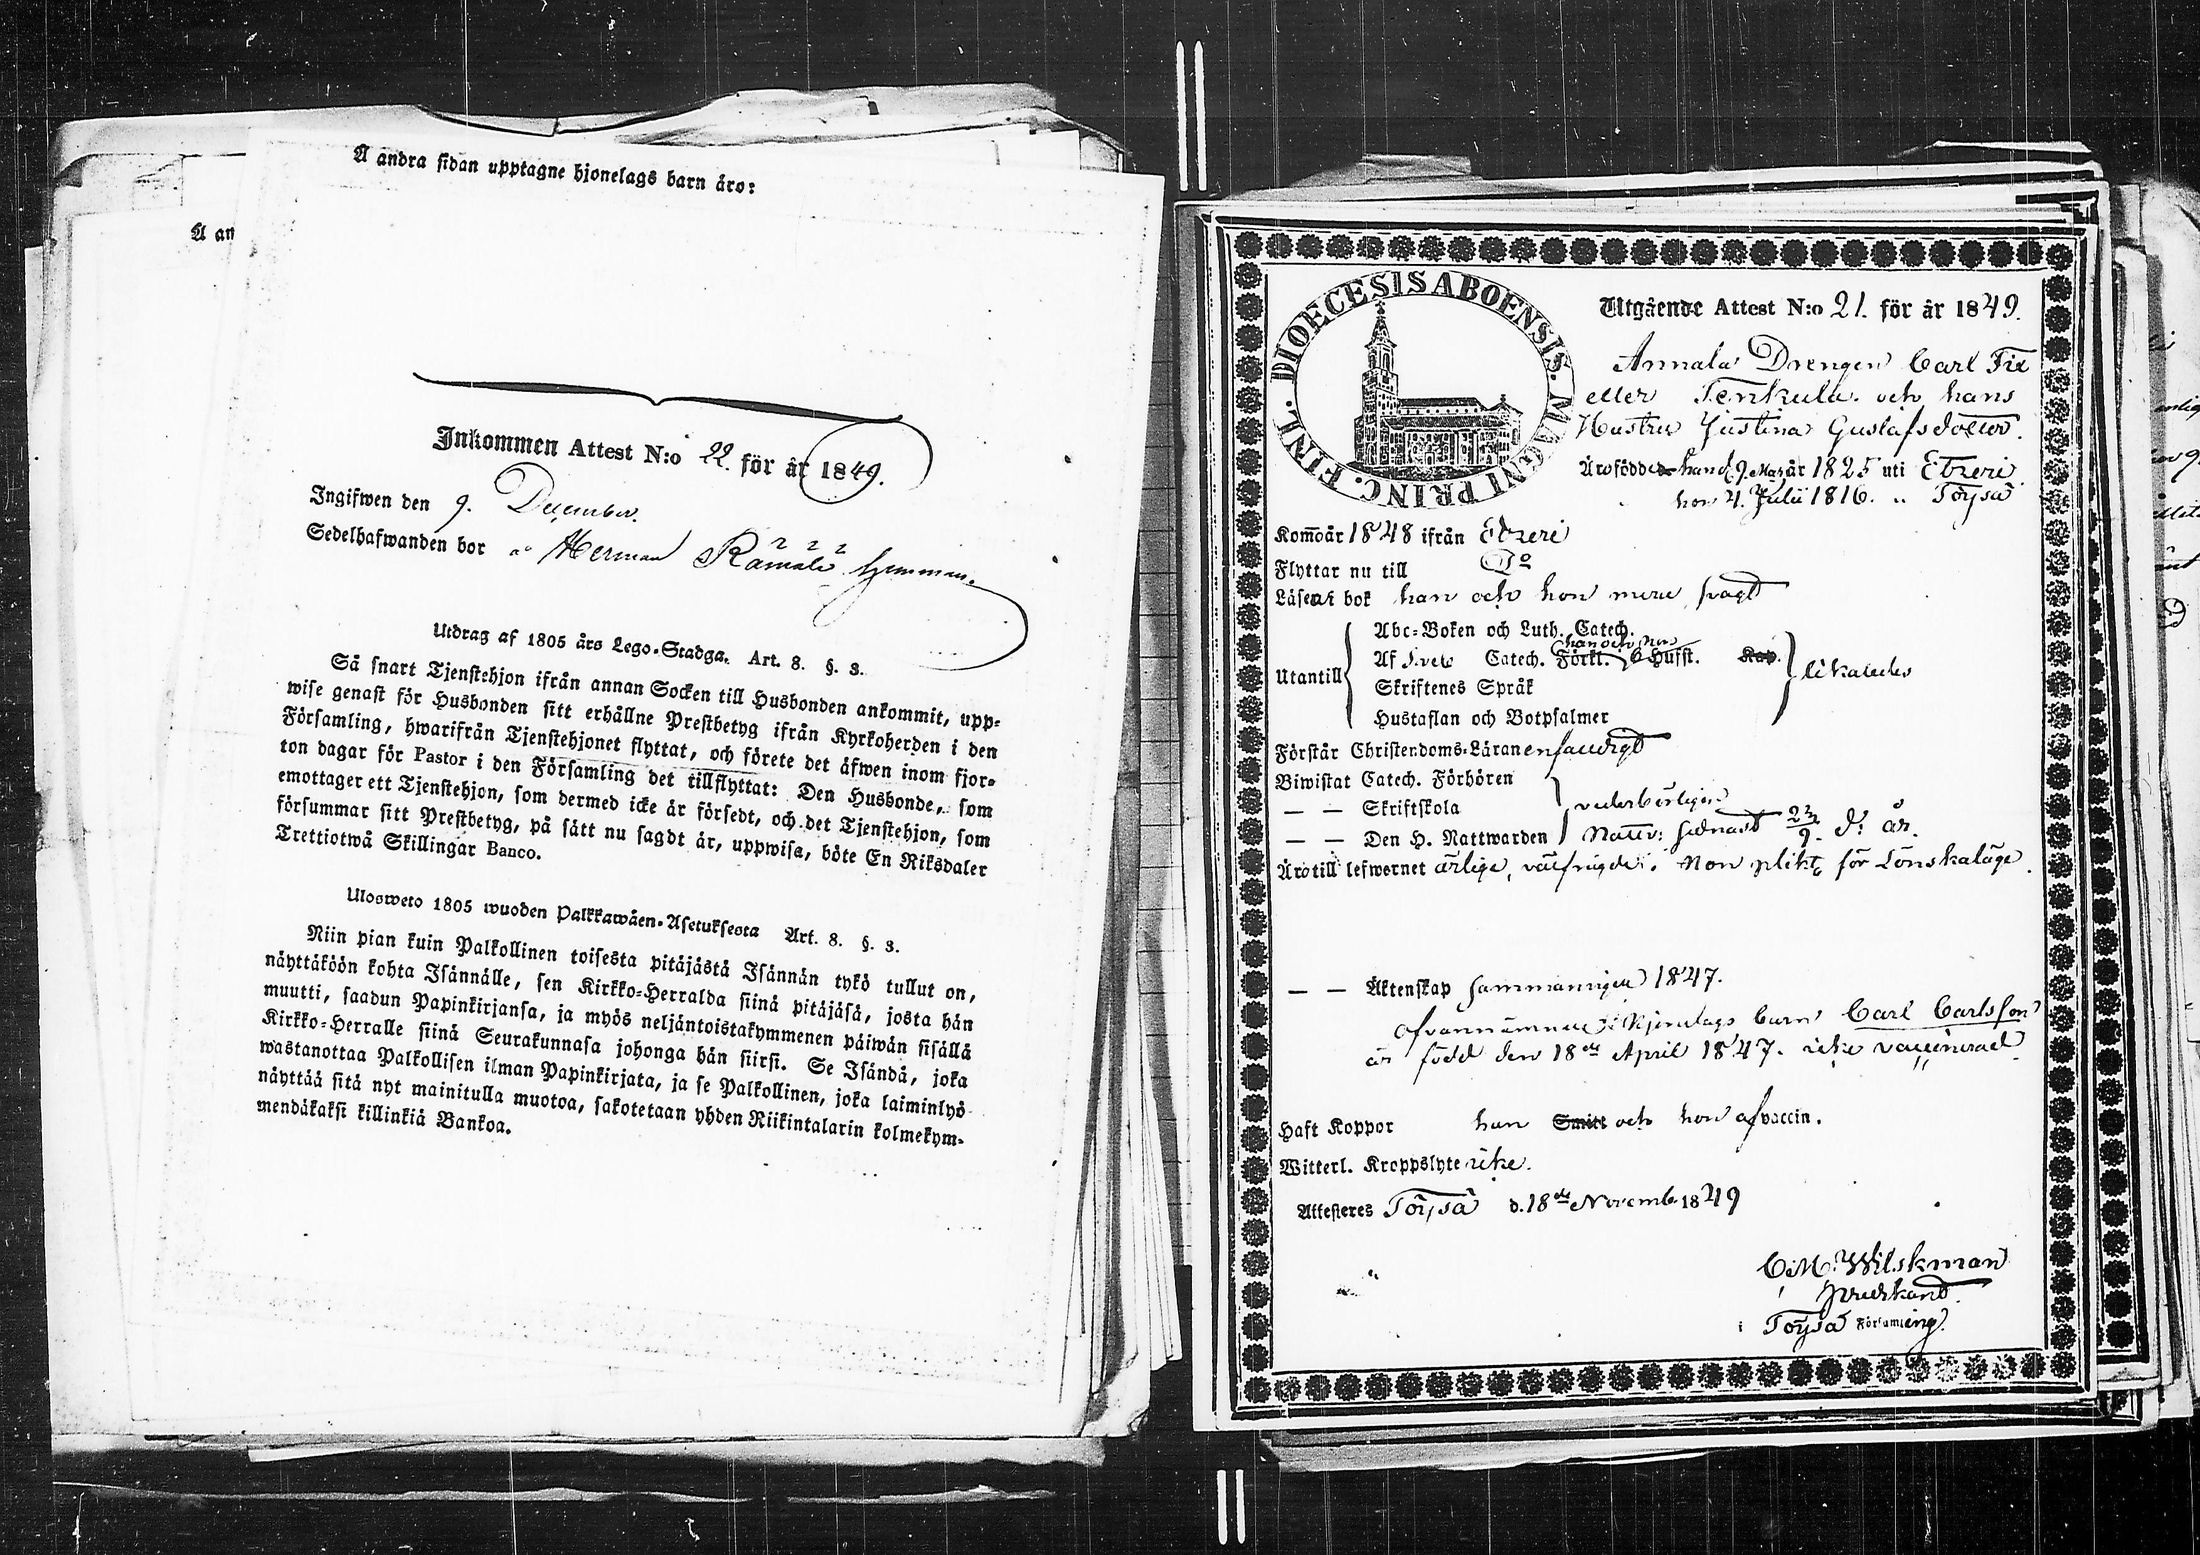 A andra sidan upptagne hjonelags barn äro:
A an
Inkommen Attest N:o 22. för år 1849.
Ingifwen den 9. December.
Sedelhafwanden bor å Herman Rämälä hemman.
Utdrag af 1805 års Lego-Stadga. Art. 8. §. 3.
Så snart Tjenstehjon ifrån annan Socken till Husbonden ankommit, upp-
wise genast för Husbonden sitt erhållne Prestbetyg ifrån Kyrkoherden i den
Församling, hwarifrån Tjenstehjonet flyttat, och förete det äfwen inom fjor-
ton dagar för Pastor i den Församling det tillflyttat: Den Husbonde, som
emottager ett Tjenstehjon, som dermed icke är försedt, och det Tjenstehjon, som
försummar sitt Prestbetyg, på sätt nu sagdt är, uppwisa, böte En Riksdaler
Trettiotwå Skillingar Banco.
Ulosweto 1805 wuoden Palkkawäen-Asetuksesta Art. 8. §. 3.
Niin pian kuin Palkollinen toisesta pitäjästä Isännän tykö tullut on,
näyttäköön kohta Isännälle, sen Kirkko-Herralda siinä pitäjäsä, josta hän
muutti, saadun Papinkirjansa, ja myös neljäntoistakymmenen päiwän sisällä
Kirkko-Herralle siinä Seurakunnasa johonga hän siirsi. Se Isändä, joka
wastanottaa Palkollisen ilman Papinkirjata, ja se Palkollinen, joka laiminlyö
näyttää sitä nyt mainitulla muotoa, sakotetaan yhden Riikintalarin kolmekym-
mendäkaksi killinkiä Bankoa.
DIOECESIS ABOENSIS. MAGNI PRINC. FINL.
Utgående Attest N:o 21. för år 1849.
Annala Drengen Carl Fix
eller Tenkula och hans
Hustru Justina Gustafsdotter.
Äro födde han d. 9. Maj år 1825 uti Etzeri
hon 4. Julii 1816. " Töysä
Kom̄o år 1848 ifrån Etzeri
Flyttar nu till Do
Läsa i bok han och hon mera svagt
Utantill
Abc-Boken och Luth. Catech.
han och hon
Af Svebs Catech. Förkl. Hussl. Kap.
Skriftenes Språk
Hustaflan och Botpsalmer
likaledes
Förstår Christendoms-Läran enfaldigt
Biwistat Catech. Förhören
— — Skriftskola vederbörligen
— — Den H. Nattwarden Nattv: sednast 23/9. d: år.
Äro till lefwernet ärlige, välfrägde. Hon plikt för Lönskaläge.
— — Äktenskap sammanvigde 1847.
Ofvannämnde Hjonelags barn Carl Carlsson
är född den 18de April 1847. icke vaccinerad
Haft Koppor han Smitt och hon af vaccin.
Witterl. Kroppslyte icke.
Attesteres Töysä d. 18de Novemb. 1849
C. M. Wilskman
Predikant.
i Töysä Församling.